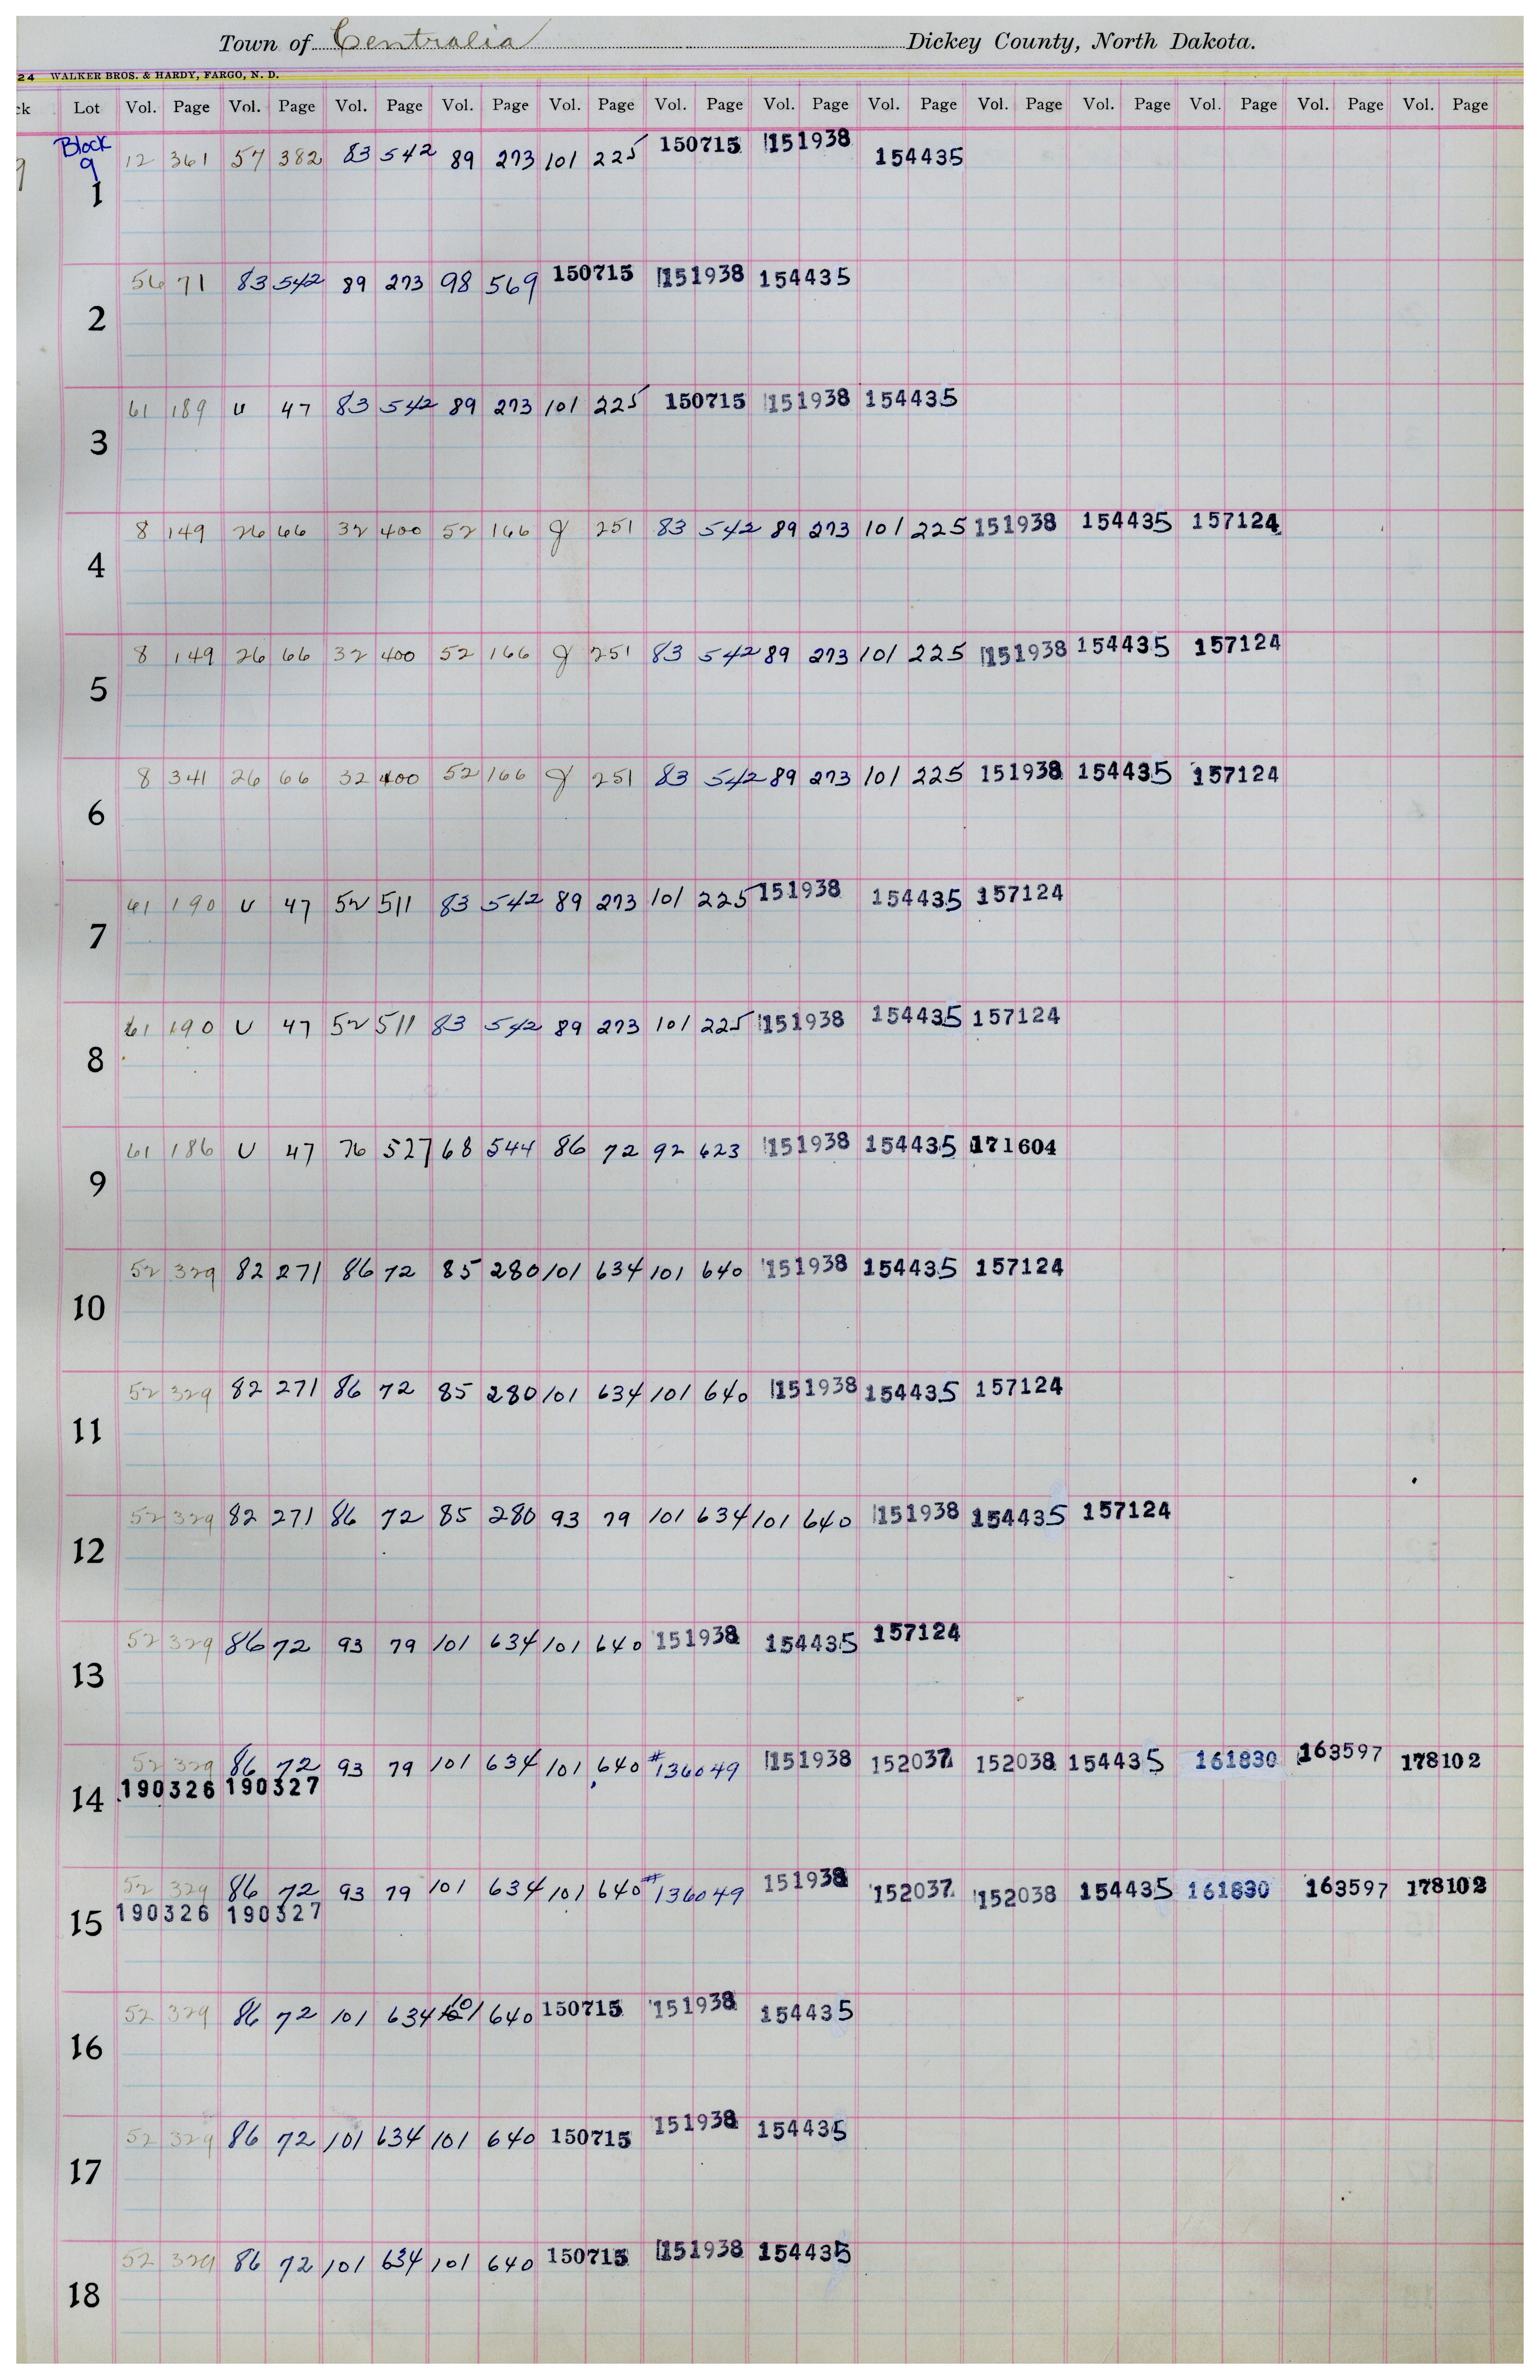 Town of Centralia Dickey County, North Dakota.
24 WALKER BROS. & HARDY, FARGO, N. D.
ck Lot Vol. Page Vol. Page Vol. Page Vol. Page Vol. Page Vol. Page Vol. Page Vol. Page Vol. Page Vol. Page Vol. Page Vol. Page Vol. Page
Block
9
9 1 12 361 57 382 83 542 89 273 101 225 150715 151938 154435
2 56 71 83 542 89 273 98 569 150715 151938 154435
3 61 189 U 47 83 542 89 273 101 225 150715 151938 154435
4 8 149 26 66 32 400 52 166 g 251 83 542 89 273 101 225 151938 154435 157124
5 8 149 26 66 32 400 52 166 g 251 83 542 89 273 101 225 151938 154435 157124
6 8 341 26 66 32 400 52 166 g 251 83 542 89 273 101 225 151938 154435 157124
7 61 190 U 47 52 511 83 542 89 273 101 225 151938 154435 157124
8 61 190 U 47 52 511 83 542 89 273 101 225 151938 154435 157124
9 61 186 U 47 76 527 68 544 86 72 92 623 151938 154435 171604
10 52 329 82 271 86 72 85 280 101 634 101 640 151938 154435 157124
11 52 329 82 271 86 72 85 280 101 634 101 640 151938 154435 157124
12 52 329 82 271 86 72 85 280 93 79 101 634 101 640 151938 154435 157124
13 52 329 86 72 93 79 101 634 101 640 151938 154435 157124
52 329 86 72 93 79 101 634 101 640 #136049 151938 152037 152038 154435 161830 163597 178102
14 190326 190327
52 329 86 72 93 79 101 634 101 640 #136049 151938 152037 152038 154435 161830 163597 178102
15 190326 190327
16 52 329 86 72 101 634 101 640 150715 151938 154435
17 52 329 86 72 101 634 101 640 150715 151938 154435
18 52 329 86 72 101 634 101 640 150715 151938 154435